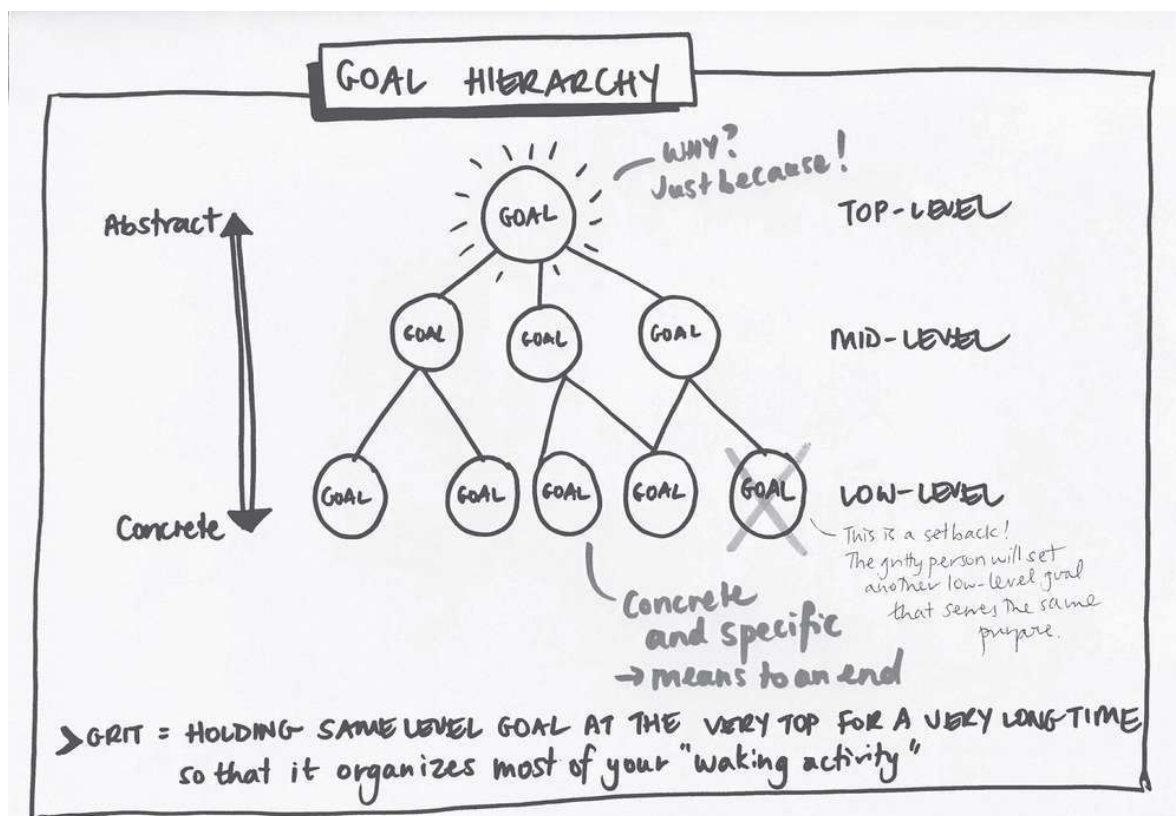 GOAL HIERARCHY
WHY?
Just because!
Abstract
GOAL
TOP-LEVEL
GOAL
GOAL
GOAL
MID-LEVEL
GOAL
GOAL
GOAL
GOAL
GOAL
LOW-LEVEL
Concrete
This is a setback!
The gritty person will set
another low-level goal
that serves the same
Concrete
and specific
→ means to an end
> GRIT = HOLDING SAME LEVEL GOAL AT THE VERY TOP FOR A VERY LONG TIME
so that it organizes most of your "waking activity"